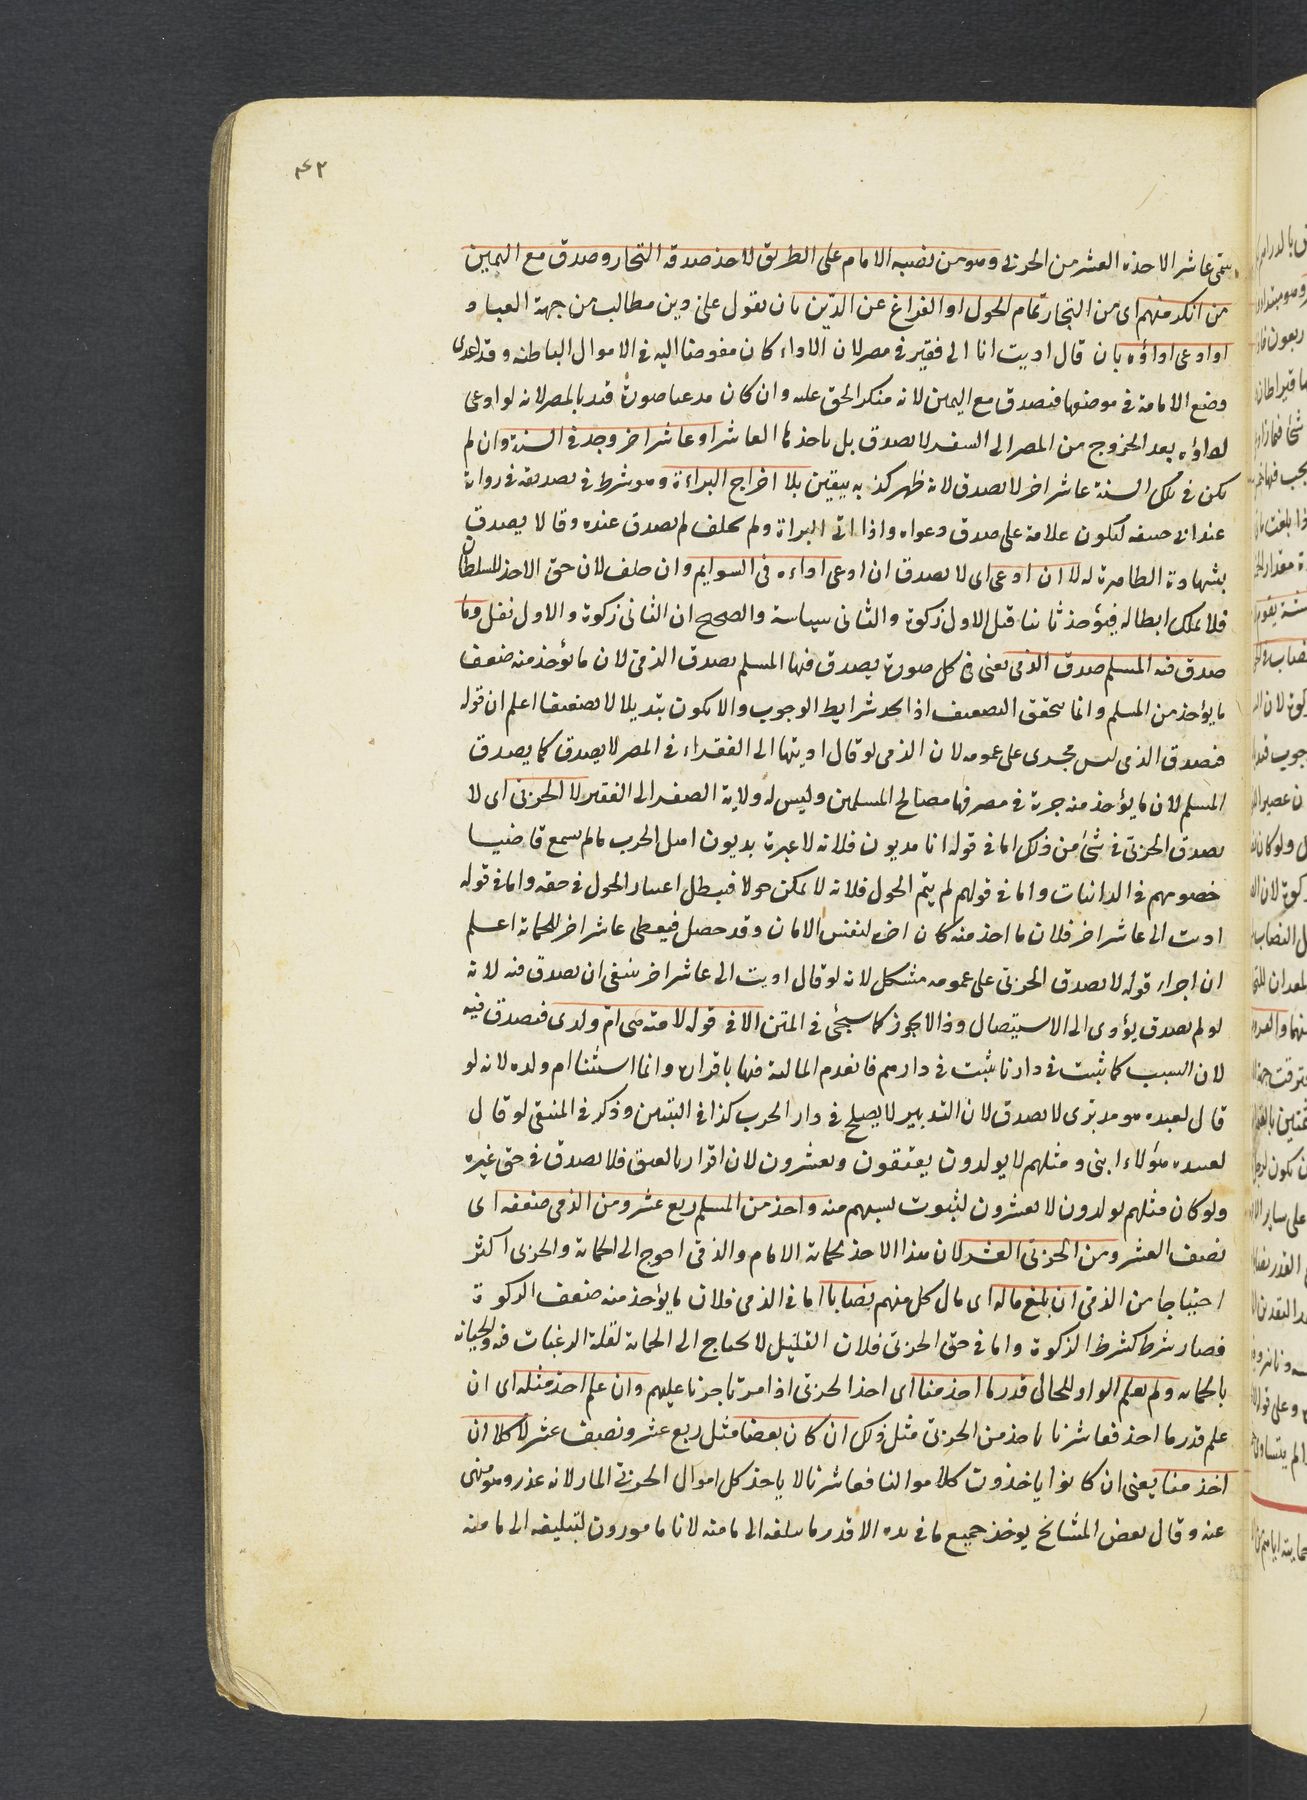 ٤٣
سمى عاشرا لاخذه العشر من الحربى وهو من نصبه الامام على الطريق لاخذ صدقة التجار وصدق مع اليمين
من انكر منهم اى من التجار تمام الحول او الفراغ عن الدين بان يقول على دين مطالب من جهة العباد
او ادعى اداؤه بان قال اديت انا الى فقير فى مصر لان الاداء كان مفوضا اليه فى الاموال الباطنة وقد ادعى
وضع الامانة فى موضعها فيصدق مع اليمين لانه منكر الحق عليه وان كان مدعيا صورة قيد بالمصر لانه لو ادعى
اداؤه بعد الخروج من المصر الى السفر لا يصدق بل ياخذها العاشر او عاشر اخر وجد فى السنة وان لم
يكن فى تلك السنة عاشر اخر لا يصدق لانه ظهر كذبه بيقين بلا اخراج البراءة وهو شرط فى تصديقه فى رواية
عند ابى حنيفة ليكون علامة على صدق دعواه واذا اتى البراة ولم يحلف لم يصدق عنده وقالا يصدق
بشهادة الظاهرة له لا ان ادعى اى لا يصدق ان ادعى اداءه فى السوايم وان حلف لان حق الاخذ للسلطان
فلا يملك ابطاله فيؤخذ ثانيا قيل الاول زكوة والثانى سياسة والصحيح ان الثانى زكوة والاول نفل وما
صدق فيه المسلم صدق الذمى يعنى فى كل صورة يصدق فيها المسلم يصدق الذمى لان ما يؤخذ منه ضعف
ما يؤخذ من المسلم وانما يتحقق التضعيف اذا اتحد شرايط الوجوب والا يكون تبديلا لا تضعيفا اعلم ان قوله
فيصدق الذمى ليس مجرى على عمومه لان الذمى لو قال اديتها الى الفقراء فى المصر لا يصدق كما يصدق
المسلم لان ما يؤخذ منه جزية فى مصرفها مصالح المسلمين وليس له ولاية الصفر الى الفقير لا الحربى اى لا
يصدق الحربى فى شئ من ذلك اما فى قوله انا مديون فلانه لا عبرة بديون اهل الحرب ما لم يسمع قاضينا
خصومهم فى الداينات واما فى قولهم لم يتم الحول فلانه لا يمكن حولا فيبطل اعتبار الحول فى حقه واما فى قوله
اديت الى عاشر اخر فلان ما اخذ منه كان اخذ لنفس الامان وقد حصل فيعطى عاشر اخر للحماية اعلم
ان اجراء قوله لا يصدق الحربى على عمومه مشكل لانه لو قال اديت الى عاشر اخر ينبغى ان يصدق فيه لانه
لو لم يصدق يؤدى الى الاستيصال وذا لا يجوز كما سيجئ فى المتن الا فى قوله لامته هى ام ولدى فيصدق فيه
لان النسب كما يثبت فى دارنا يثبت فى دارهم فانعدم المالية فيها باقراره وانما استثنا ام ولده لانه لو
قال لعبده هو مدبرى لا يصدق لان التدبير لا يصلح فى دار الحرب كذا فى التبيين وذكر فى المنتقى لو قال
لعبيده هؤلاء ابنى ومثلهم لا يولدون يعتقون ويعشرون لان اقراره بالعتق فلا يصدق فى حق غيره
ولو كان مثلهم يولدون لا يعشرون لثبوت نسبهم منه واخذ من المسلم ربع عشر ومن الذمى ضعفه اى
نصف العشر ومن الحربى العشر لان هذا الاخذ بحماية الامام والذمى احوج الى الحماية والحربى اكثر
احتياجا من الذمى ان بلغ ماله اى مال كل منهم نصابا اما فى الذمى فلان ما يؤخذ منه ضعف الزكوة
فصار شرط كشرط الزكوة واما فى حق الحربى فلان القليل لا يحتاج الى الحماية لقلة الرغبات فيه والجباية
بالحماية ولم يعلم الواو للحال قدر ما اخذ منا اى اخذ الحربى اذا مر تاجرنا عليهم وان علم اخذ مثله اى ان
علم قدر ما اخذ فعاشرنا ياخذ من الحربى مثل ذلك ان كان بعضا مثل ربع عشر ونصف عشر لا كلا ان
اخذ منا يعنى ان كانوا ياخذون كل اموالنا فعاشرنا لا ياخذ كل اموال الحربى المار لانه غدر وهو منهى
عنه وقال بعض المشايخ يوخذ جميع ما فى يده الا قدر ما يبلغه الى مامنه لانا مامورون بتبليغه الى مامنه